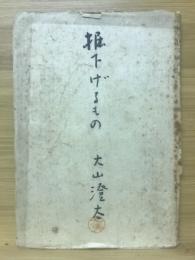 掘下げるもの
大山澄太